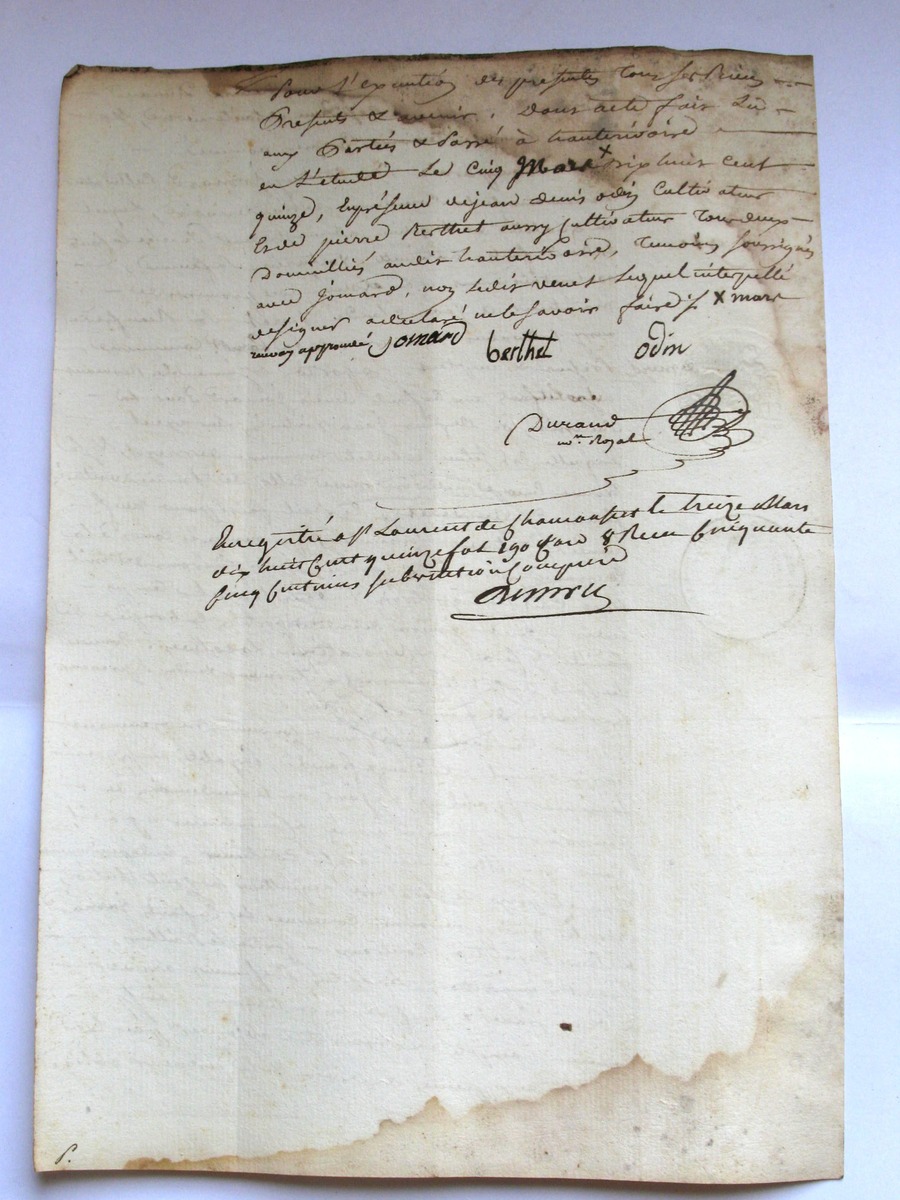 Pour l'execution des presentes tous ses Biens
Presents & avenir, Dont acte fait Lu
aux Parties & Passé à hauterivoire
en L'etude Le Cinq Mars x dix huit Cent
quinze, En présence de jean denis odin Cultivateur
Et de pierre Berthet aussy Cultivateur Tous deux
Domiciliés audit hauterivoire, Temoins soussignés
avec Jomard, non ledit venet lequel interpellé
de signer a declaré ne le savoir faire x mars
renvoy approuvé Jomard berthet odin
Durand
nre Royal
Enregistré a St Laurent de Chamousset le treize Mars
dix huit Cent quinze fol 190 Case 8 Recu Cinquante
Cinq Centimes subvention Comprise